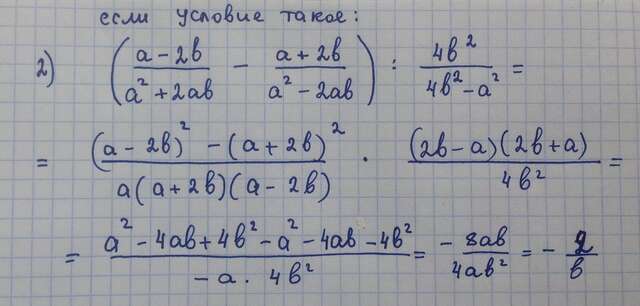 если условие такое:
2) ( (a - 2b)/(a² + 2ab) - (a + 2b)/(a² - 2ab) ) : 4b²/(4b² - a²) =
= ((a - 2b)² - (a + 2b)²)/(a(a + 2b)(a - 2b)) · ((2b - a)(2b + a))/(4b²) =
= (a² - 4ab + 4b² - a² - 4ab - 4b²)/(-a · 4b²) = - 8ab/(4ab²) = - 2/b